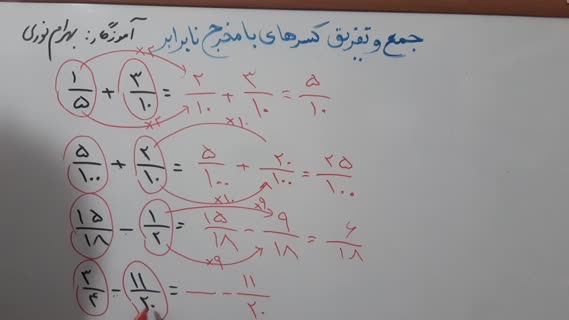 جمع و تفریق کسرهای با مخرج نا برابر آموزگار: بهرام نوری
×۲
۱/۵ + ۳/۱۰ = ۲/۱۰ + ۳/۱۰ = ۵/۱۰
×۲ ×۱۰
۵/۱۰۰ + ۲/۱۰ = ۵/۱۰۰ + ۲۰/۱۰۰ = ۲۵/۱۰۰
×۱۰ ×۹
۱۵/۱۸ - ۱/۲ = ۱۵/۱۸ - ۹/۱۸ = ۶/۱۸
×۹
۳/۴ - ۱۱/۲۰ = — - ۱۱/۲۰